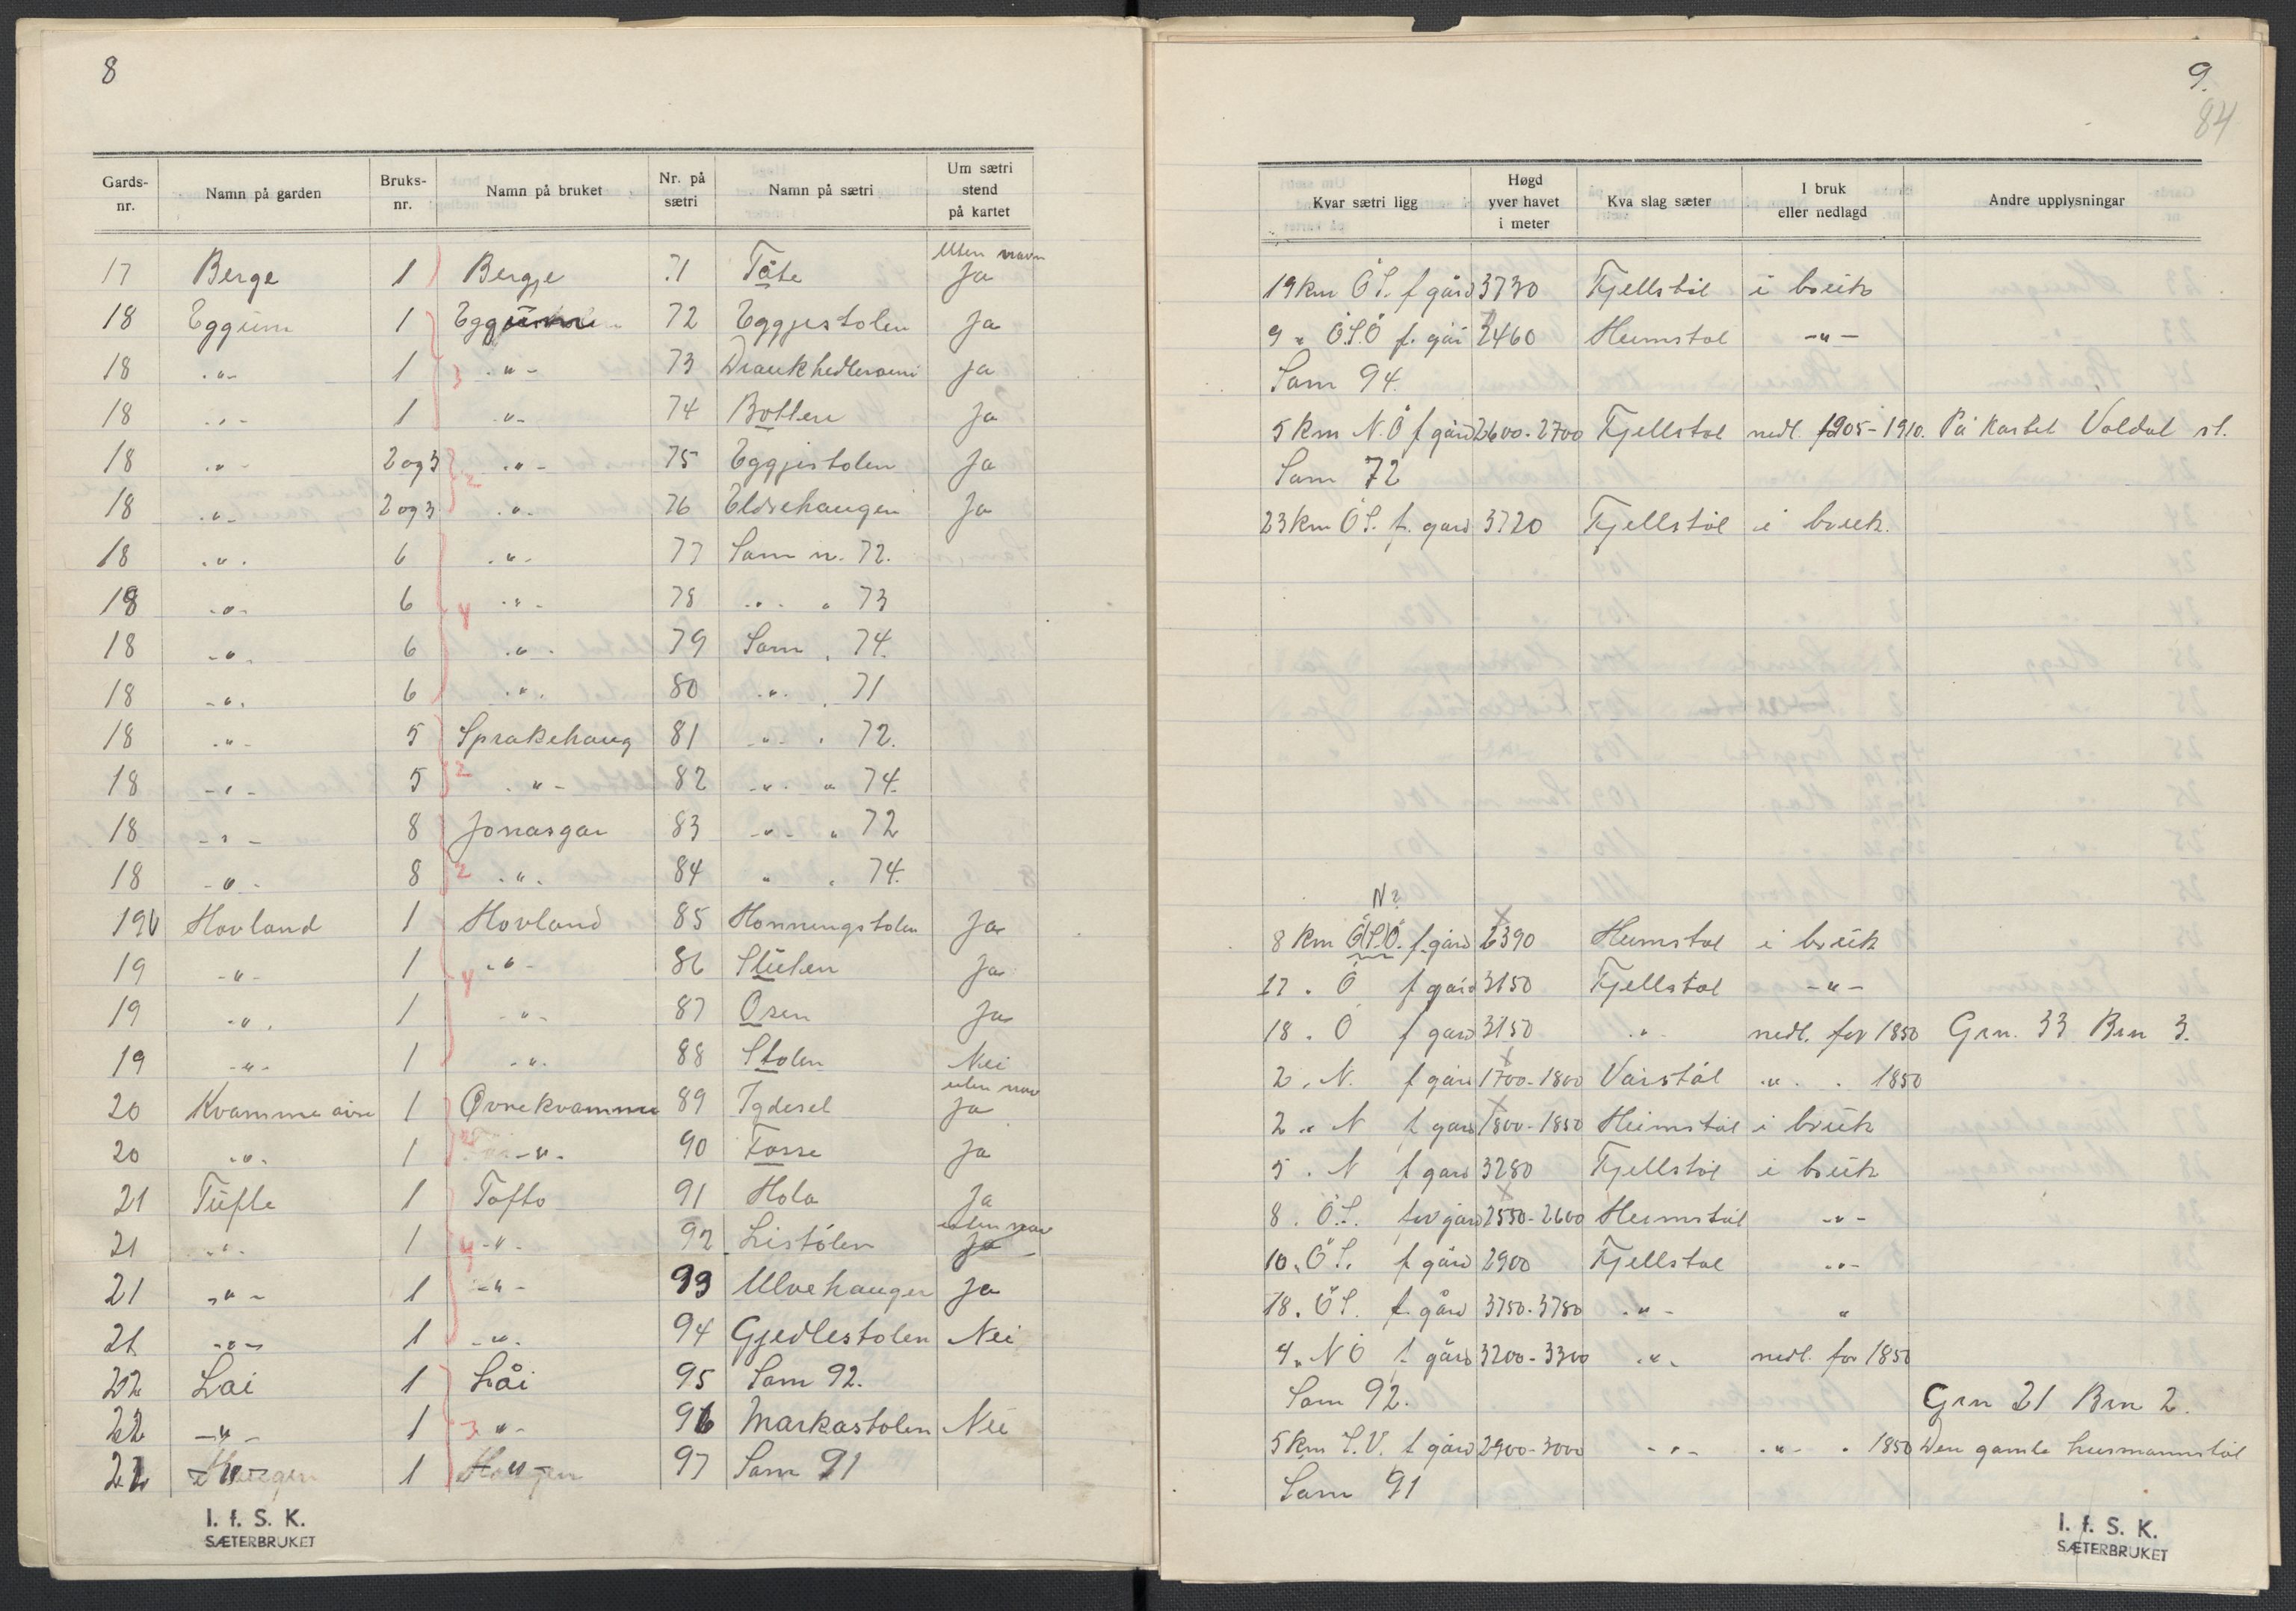 8
Gards-nr. Namn på garden Bruks-nr. Namn på bruket Nr. på sætri Namn på sætri Um sætri stend på kartet
17 Berge 1 Bergje 71 Tåte Uten navn Ja
18 Eggum 1 72 Eggjestolen Ja
18 -"- 1 3 -"- 73 Ja
18 -"- 1 -"- 74 Botten Ja
18 -"- 2 og 3 2 -"- 75 Eggjestolen Ja
18 -"- 2 og 3 -"- 76 Eldrehaugen Ja
18 -"- 6 -"- 77 Sam n. 72.
18 -"- 6 4 -"- 78 -"- " 73
18 -"- 6 -"- 79 Sam " 74.
18 -"- 6 -"- 80 -"- " 71
18 -"- 5 Sprakehaug 81 -"- " 72.
18 -"- 5 2 -"- 82 -"- " 74.
18 -"- 8 Jonasgar 83 -"- " 72
18 -"- 8 2 -"- 84 " " 74.
19 Hovland 1 Hovland 85 Honningstolen Ja
19 -"- 1 4 -"- 86 Ja
19 -"- 1 -"- 87 Osen Ja
19 -"- 1 -"- 88 Stolen Nei
20 Kvamme øvre 1 Øvrekvamme 89 Igdesel uten nav Ja
20 -"- 1 -"- 90 Fosse Ja
21 Tufte 1 Tofto 91 Hola Ja
21 -"- 1 4 -"- 92 Listølen uten nav Ja
21 -"- 1 -"- 93 Ulvehaugen Ja
21 -"- 1 -"- 94 Gjedlestolen Nei
22 Lai 1 Låi 95 Sam 92.
22 -"- 1 3 -"- 96 Markastolen Nei
22 -"- 1 -"- 97 Sam 91
I. f. S. K.
SÆTERBRUKET
9.
84
Kvar sætri ligg Høgd yver havet i meter Kva slag sæter I bruk eller nedlagd Andre upplysningar
19 km Ö S. f gård 3730 Fjellstöl i bruk
9 " Ö.S.Ö f. går 2460 Heimstol -"-
Sam 94.
5 km N.Ö f gård 2600-2700 Fjellstol nedl. 1905-1910. På kartet Valdal st.
Sam 72
23 km Ö S. f. gard 3720 Fjellstöl i bruk.
N?
8 km Ö.S.Ö. f. gård 2390 Heimstol i bruk
17 " Ö f gård 3150 Fjellstol -"-
18 " Ö f gard 3150 -"- nedl. før 1850 Grn. 33 Brn 3.
2 " N. f gård 1700-1800 Vårstöl -"- " 1850
2 " N f gard 1800-1850 Heimstöl i bruk
5 " N f gard 3280 Fjellstöl i bruk
8 " Ö.S. for gård 2550-2600 Heimstöl -"-
10 " Ö S. f gård 2900 Fjellstol -"-
18 " Ö S. f. gård 3750-3780 -"- "
4 " N Ö f. gård 3200-3300 -"- nedl. før 1850
Sam 92. Grn 21 Brn 2.
5 km S.V. f gård 2900-3000 -"- -"- " 1850 Den gamle husmannstöl
Sam 91
I. f. S. K.
SÆTERBRUKET